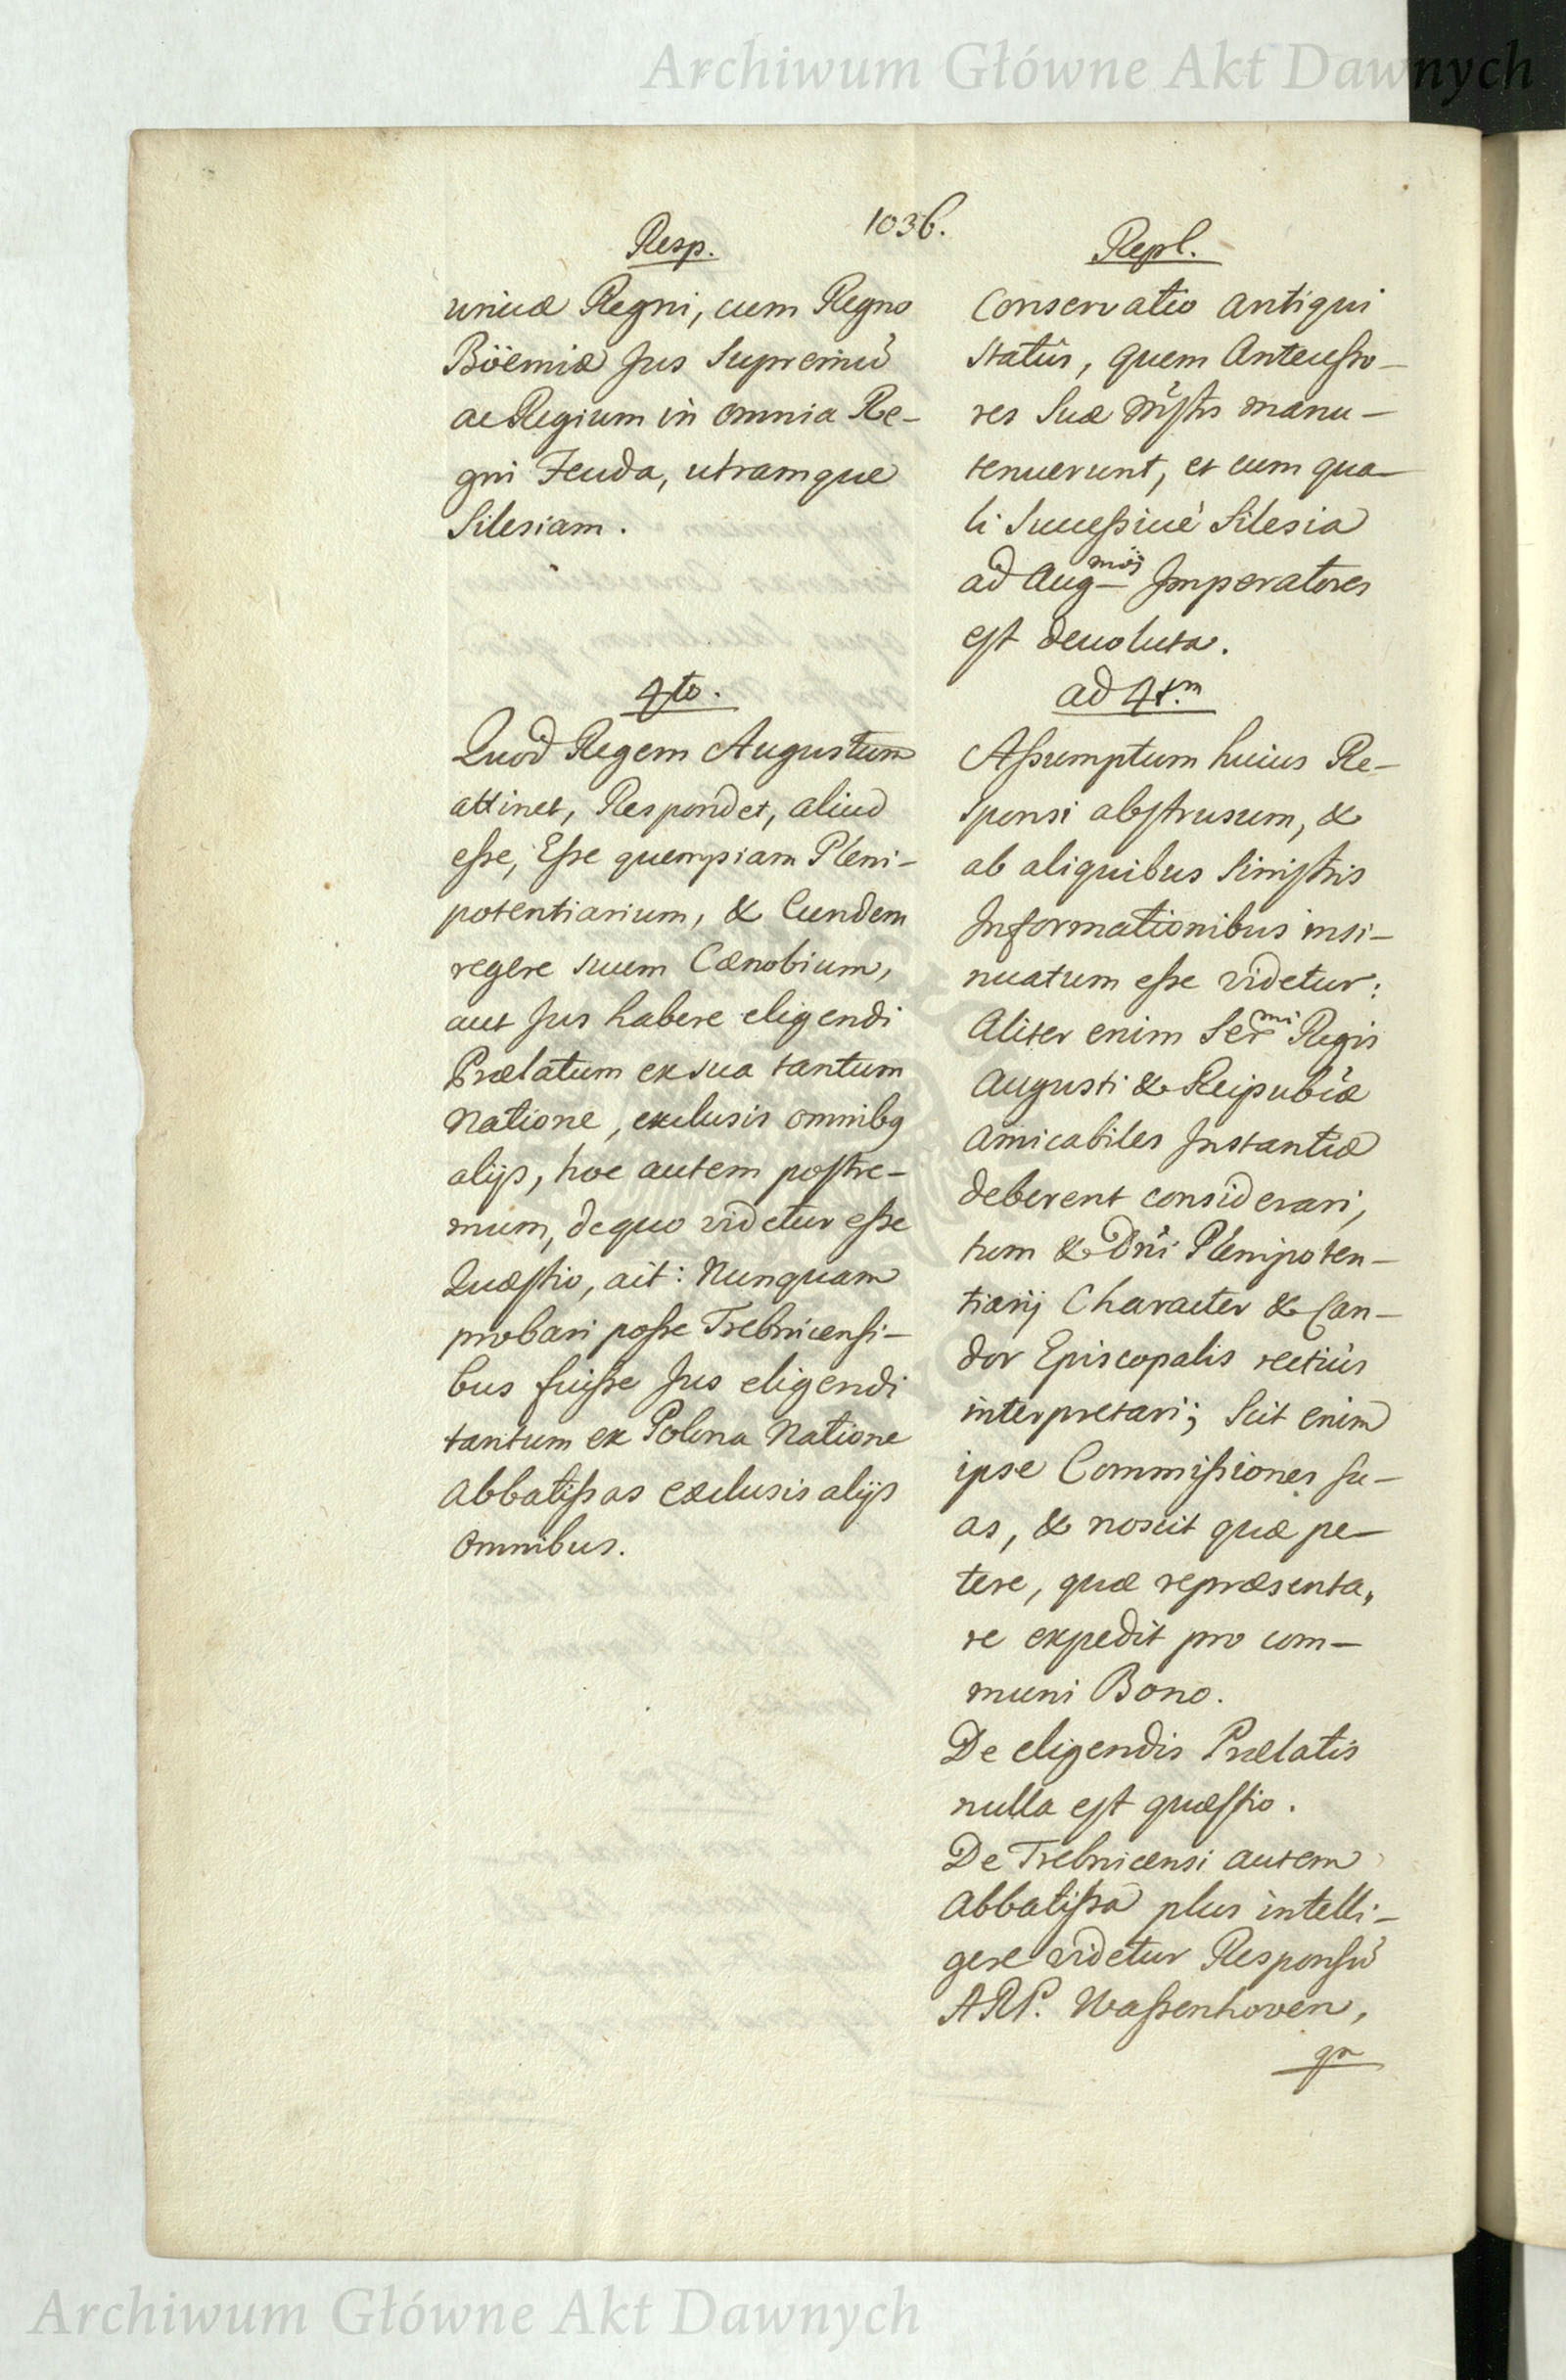 Archiwum Główne Akt Dawnych
1036.
Resp.
unicæ Regni, cum Regno
Böemiæ Jus Supremũ
ac Regium in omnia Re-
gni Feuda, utramque
Silesiam.
4to.
Quod Regem Augustum
attinet, Respondet, aliud
eſse, Eſse quempiam Pleni-
potentiarium, & Eundem
regere suum Cænobium,
aut Jus habere eligendi
Prælatum ex sua tantum
Natione, exclusis omnibq
alijs, hoc autem poſtre-
mum, de quo videtur eſse
Quæſtio, ait: Nunquam
probari poſse Trebnicenſi-
bus fuiſse Jus eligendi
tantum ex Polona Natione
Abbatiſsas exclusis alijs
omnibus.
Repl.
Conservatio antiqui
Statûs, quem Anteceſso-
res Suæ Mſtis manu-
tenuerunt, et cum qua-
li Succeſsivè Silesia
ad Augmõs Imperatores
eſt devoluta.
ad 4t.m
Aſsumptum huius Re-
sponsi abſtrusum, &
ab aliquibus Siniſtris
Informationibus insi-
nuatum eſse videtur:
Aliter enim Sermi Regis
Augusti & Reipublæ
Amicabiles Instantiæ
deberent considerari,
tum & Dni Plenipoten-
tiarij Character & Can-
dor Episcopalis rectiùs
interpretari; Scit enim
ipse Commiſsiones su-
as, & noscit quæ pe-
tere, quæ repræsenta„
re expedit pro com-
muni Bono.
De eligendis Prælatis
nulla eſt quæſtio.
De Trebnicensi autem
Abbatiſsa plus intelli-
gere videtur Responſũ
ARP. Waſsenhoven,
qa
Archiwum Główne Akt Dawnych